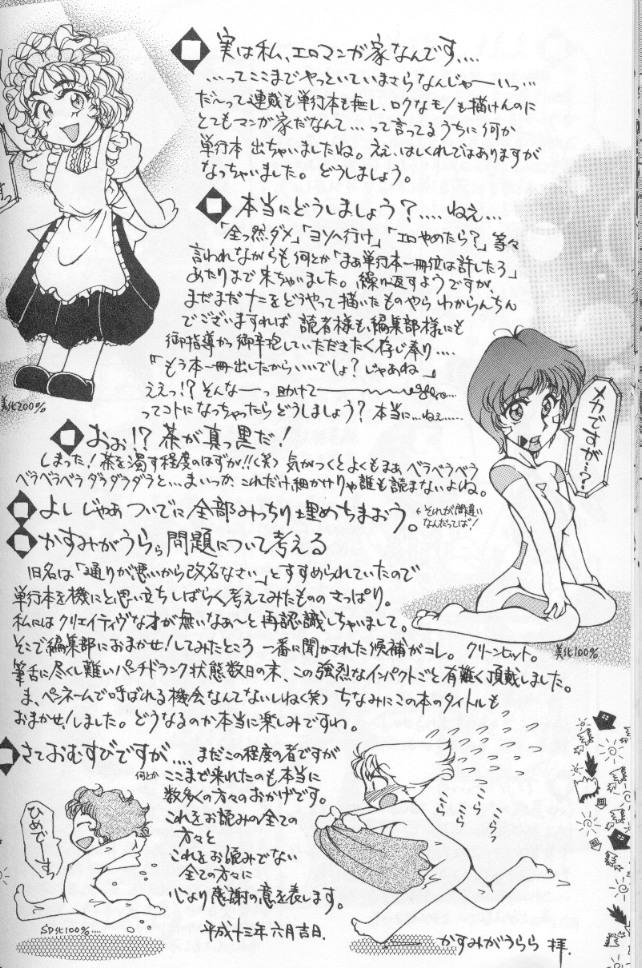 実は私、エロマンガ家なんです....
...ってここまでやっといていまさらなんじゃーいっ...
だ〜って連載も単行本も無し、ロクなモノも描けんのに
とてもマンガ家だなんて...って言ってるうちに何か
単行本 出ちゃいましたね。ええ、はしくれではありますが
なっちゃいました。どうしましょう。
本当にどうしましょう?....ねえ...
「全っ然ダメ」「ヨソへ行け」「エロやめたら?」等々
言われながらも何とか「まあ単行本一冊位は許したろ」
あたりまで来ちゃいました。繰り返すようですが、
まだまだナニをどうやって描いたものやら わからんちん
でございますれば 読者様も編集部様にも
御指導かつ御辛抱していただきたく存じ奉り....
「もう本一冊出したからいいでしょ?じゃあね」
ええっ!?そんなーっ助けて
ってコトになっちゃったらどうしましょう?本当に...ねえ......
美化200%
メカですが...?
おぉ!?茶が真っ黒だ!
しまった!茶を濁す程度のはずが!!(笑) 気がつくとよくもまあ ベラベラベラ
ベラベラベラ ダラダラダラと...まいっか、これだけ細かけりゃ誰も読まないよね。
よし じゃあ ついでに全部みっちり埋めちまおう。
それが間違いなんだってば!
かすみがうらら問題について考える
旧名は「通りが悪いから改名なさい」とすすめられていたので
単行本を機にと思い立ちしばらく考えてみたものの さっぱり。
私にはクリエイティヴな才が無いなあ〜と 再認識しちゃいまして。
そこで編集部におまかせ!してみたところ 一番に聞かされた候補がコレ。クリーンヒット。
筆舌に尽くし難いパンチドランク状態数日の末、この強烈なインパクトごと有難く頂戴しました。
ま、ペンネームで呼ばれる機会なんてないしね(笑) ちなみにこの本のタイトルも
おまかせ!しました。どうなるのか本当に楽しみですわ。
美化100%
さておむすびですが.... まだこの程度の者ですが
何とか ここまで来れたのも本当に
数多くの方々のおかげです。
これをお読みの全ての
方々と
これをお読みでない
全ての方々に
心より感謝の意を表します。
平成十三年 六月吉日.
かすみがうらら 拝.
ひめです。
SD化100%....
うらら
うらら